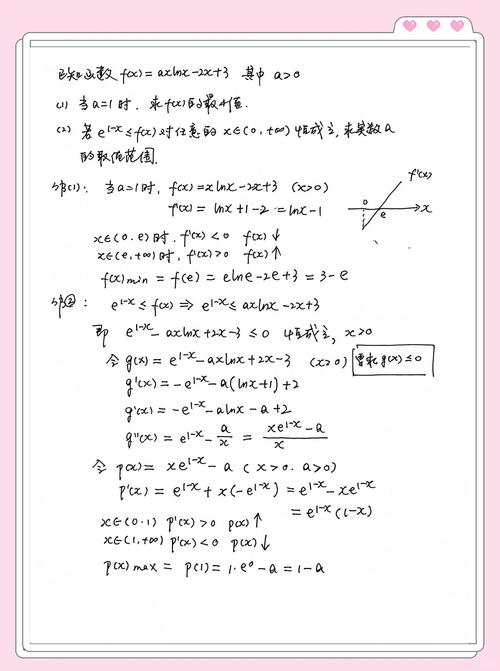 已知函数 f(x)=axlnx-2x+3 其中 a>0
(1) 当a=1时, 求f(x)的最小值.
(2) 若 e^{1-x}≤f(x)对任意的 x∈(0,+∞)恒成立,求实数a
的取值范围.
解(1): 当a=1时, f(x)=xlnx-2x+3 (x>0)
f'(x)= lnx+1-2=lnx-1
f'(x)
0
e
x
x∈(0.e)时. f'(x)<0 f(x)↓
x∈(e,+∞)时, f'(x)>0 f(x)↑
f(x)min = f(e)= elne-2e+3=3-e
解②: e^{1-x}≤f(x)⇒e^{1-x}≤axlnx-2x+3
即 e^{1-x}-axlnx+2x-3≤0 恒成立, x>0
令g(x)=e^{1-x}-axlnx+2x-3 (x>0) 需求g(x)≤0
g'(x)=-e^{1-x}-a(lnx+1)+2
g'(x)=-e^{1-x}-alnx-a+2
g''(x)=e^{1-x}-a/x = (xe^{1-x}-a)/x
令 p(x)= xe^{1-x}-a (x>0. a>0)
p'(x)= e^{1-x}+x(-e^{1-x})=e^{1-x}-xe^{1-x}
=e^{1-x}(1-x)
x∈(0.1) p'(x)>0 p(x)↑
x∈(1,+∞) p'(x)<0 p(x)↓
p(x)max= p(1)=1·e^0-a=1-a